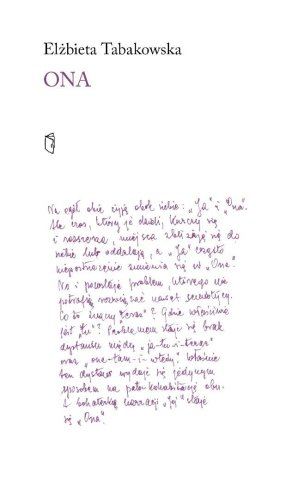 Elżbieta Tabakowska
ONA
Na ogół obie żyją obok siebie: „Ja” i „Ona”.
Ale czas, który je dzieli, kurczy się
i rozszerza, miejsca zbliżają się do
siebie lub oddalają, a „Ja” często
niepostrzeżenie zmienia się w „Ona”.
No i powstaje problem, którego nie
potrafią rozwiązać nawet semiotycy.
Co to znaczy „teraz”? Gdzie właściwie
jest „tu”? Problemem staje się brak
dystansu między „ja-tu-i-teraz”
oraz „one-tam-i-wtedy”. Właśnie
ten dystans wydaje się jedynym
sposobem na kohabitację obu.
I bohaterką narracji „Ja” staje
się „Ona”.